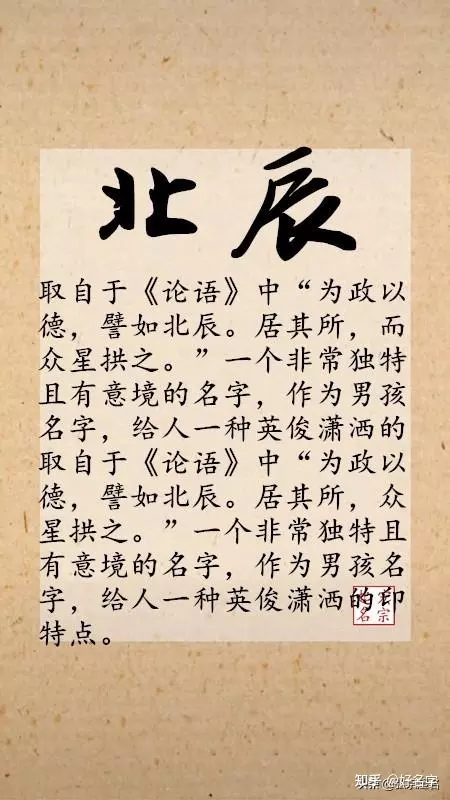 北辰
取自于《论语》中“为政以
德，譬如北辰。居其所，而
众星拱之。”一个非常独特
且有意境的名字，作为男孩
名字，给人一种英俊潇洒的
取自于《论语》中“为政以
德，譬如北辰。居其所，众
星拱之。”一个非常独特且
有意境的名字，作为男孩名
字，给人一种英俊潇洒的印
特点。
知乎 @好名字